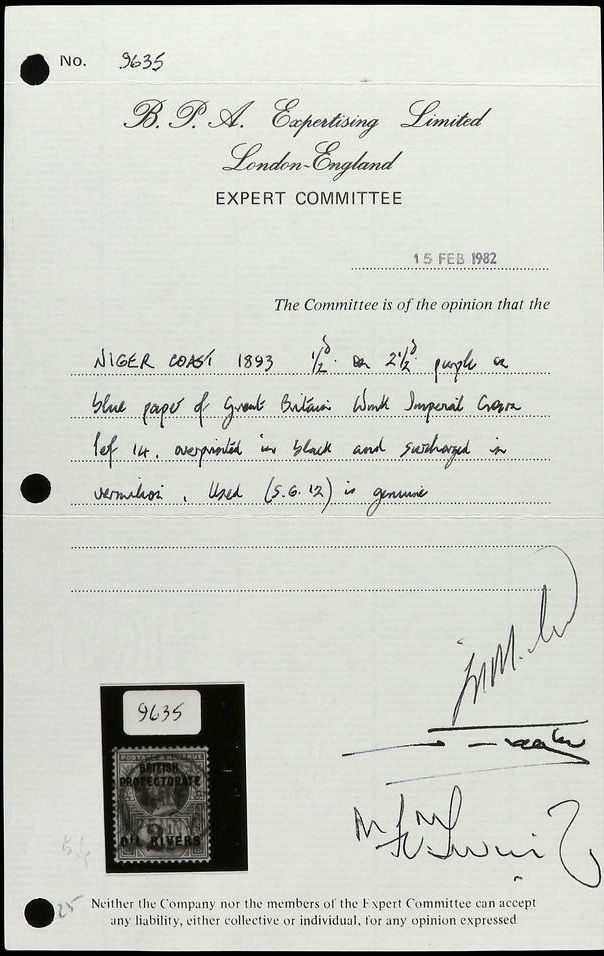 No. 9635
B. P. A. Expertising Limited
London-England
EXPERT COMMITTEE
15 FEB 1982
The Committee is of the opinion that the
NIGER COAST 1893 ½d. on 2½d. purple on
blue paper of Great Britain Wmk Imperial Crown
Perf 14, overprinted in black and surcharged in
vermilion, Used (S.G. 12) is genuine
9635
POSTAGE & REVENUE
BRITISH
PROTECTORATE
OIL RIVERS
25
Neither the Company nor the members of the Expert Committee can accept
any liability, either collective or individual, for any opinion expressed